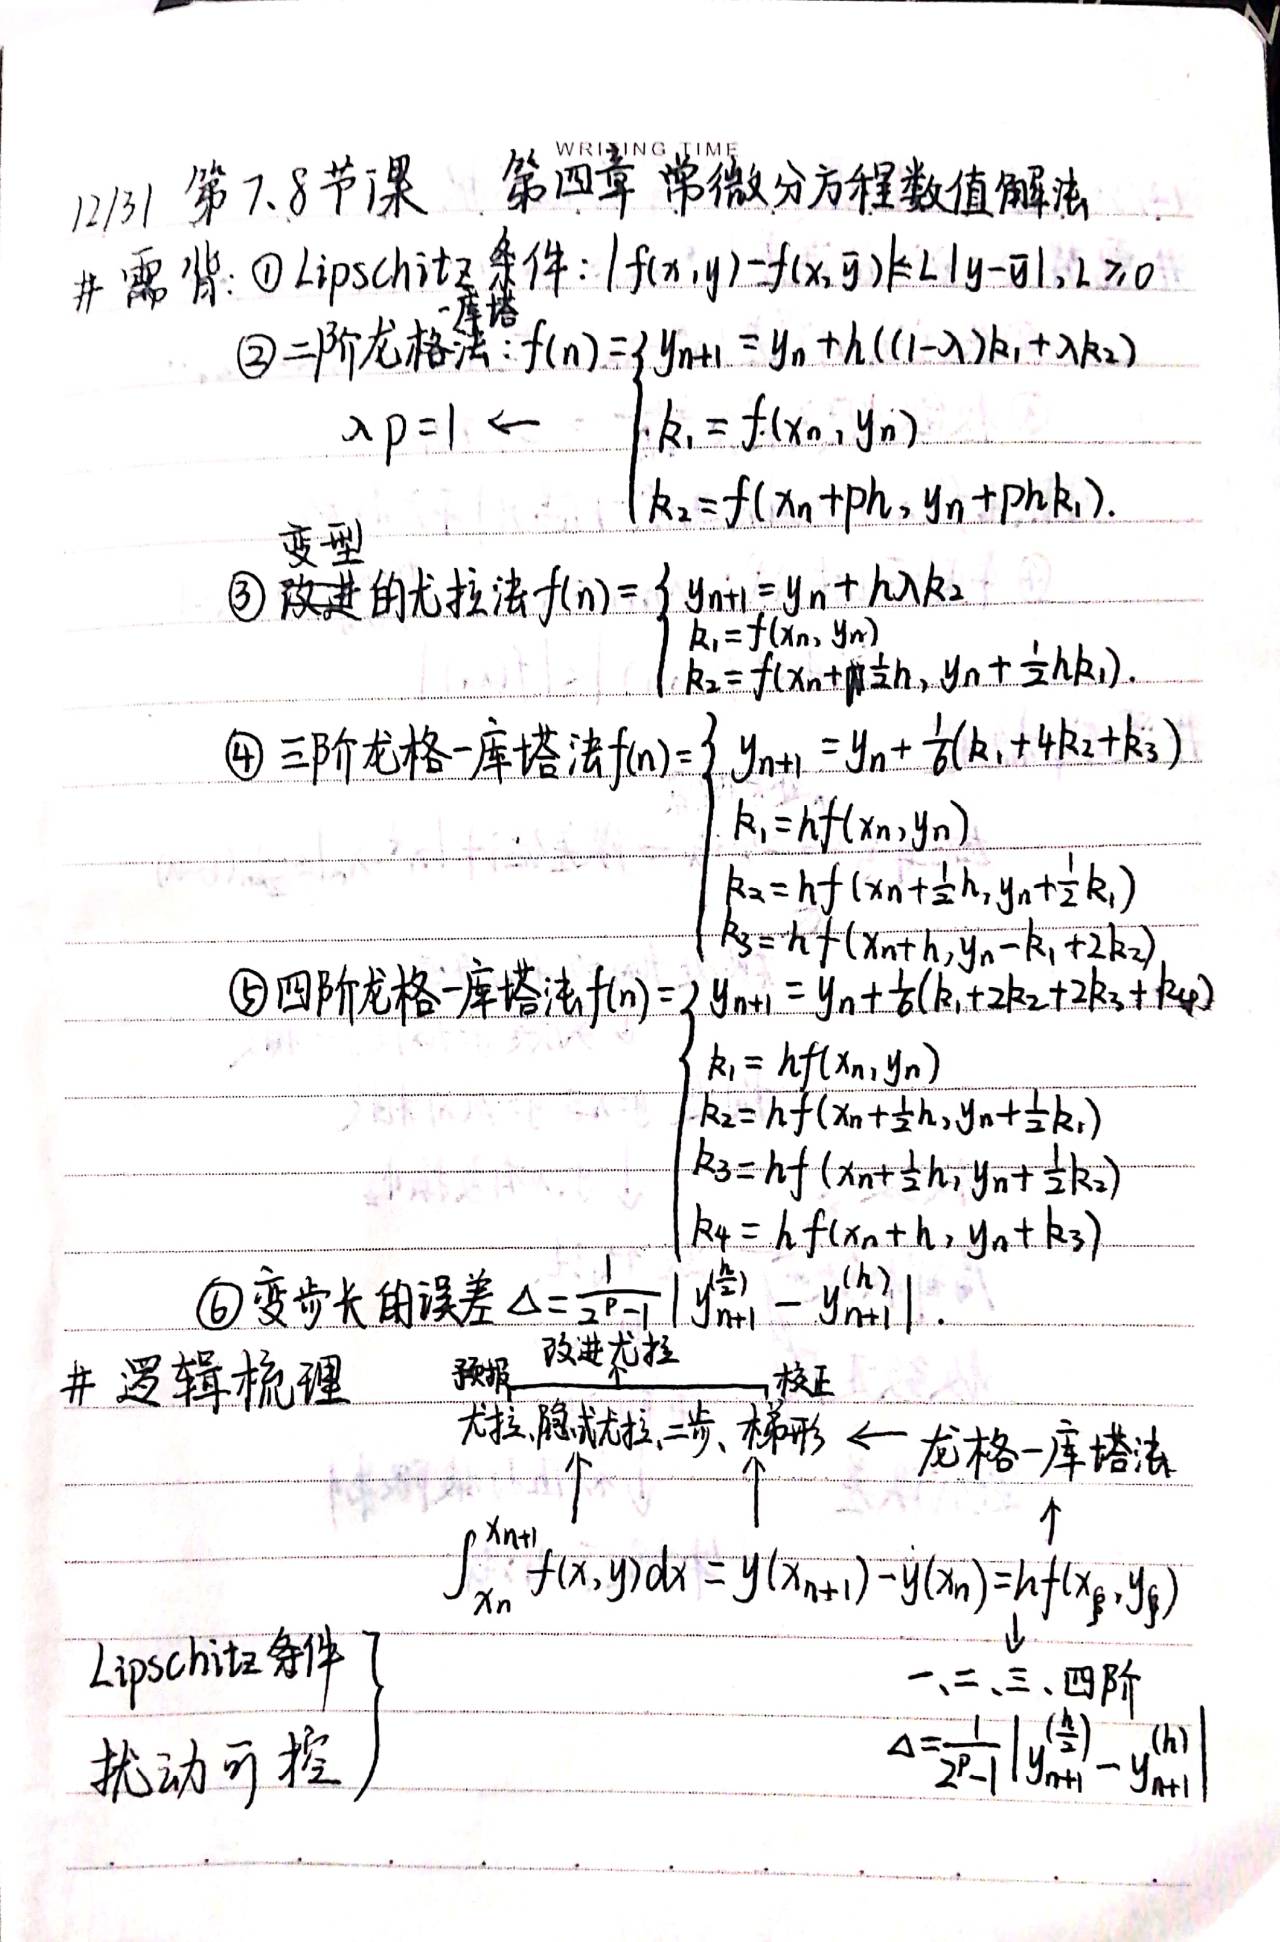 WRITING TIME
12/31 第7、8节课 第四章 常微分方程数值解法
# 需背: ① Lipschitz 条件: |f(x,y)-f(x,ȳ)|≤L|y-ȳ|, L≥0
② 二阶龙格-库塔法: f(n)={ y_{n+1}=y_n+h((1-λ)k₁+λk₂)
λp=1 ← k₁=f(x_n,y_n)
k₂=f(x_n+ph, y_n+phk₁).
变型
③ 改进的尤拉法 f(n)={ y_{n+1}=y_n+hλk₂
k₁=f(x_n,y_n)
k₂=f(x_n+½h, y_n+½hk₁).
④ 三阶龙格-库塔法 f(n)={ y_{n+1}=y_n+1/6(k₁+4k₂+k₃)
k₁=hf(x_n,y_n)
k₂=hf(x_n+½h,y_n+½k₁)
k₃=hf(x_n+h,y_n-k₁+2k₂)
⑤ 四阶龙格-库塔法 f(n)={ y_{n+1}=y_n+1/6(k₁+2k₂+2k₃+k₄)
k₁=hf(x_n,y_n)
k₂=hf(x_n+½h,y_n+½k₁)
k₃=hf(x_n+½h,y_n+½k₂)
k₄=hf(x_n+h,y_n+k₃)
⑥ 变步长的误差 Δ=1/(2^p-1)|y_{n+1}^{(h/2)}-y_{n+1}^{(h)}|.
改进尤拉
# 逻辑梳理 预报 ↑ 校正
尤拉、隐式尤拉、二步、梯形 ← 龙格-库塔法
↑ ↑ ↑
∫_{x_n}^{x_{n+1}} f(x,y)dx=y(x_{n+1})-y(x_n)=hf(x_ξ,y_ξ)
↓
Lipschitz 条件 }
一、二、三、四阶
扰动可控
Δ=1/(2^p-1)|y_{n+1}^{(h/2)}-y_{n+1}^{(h)}|